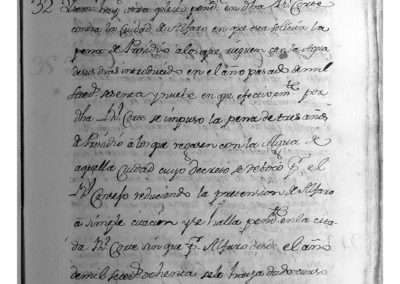 32 Ytem hay otro pleito pend.te en dha R.l Corte
contra la Ciudad de Alfaro en que esta solicita la
pena de Presidio a los que rieguen con la Agua
de sus dias introducido en el año pasado de mil
Setez.s setenta y nueve en que efectivam.te por
dha R.l Corte se impuso la pena de tres años
de Presidio a los que regasen con la Agua de
aquella Ciudad cuyo decreto se revocó p.r el
R.l Consejo reduciendo la pretension de Alfaro
à simple citacion y se halla pend.te en la cita-
da R.l Corte sin que p.r Alfaro desde el año
de mil Setez.s ochenta se le haya dado curso